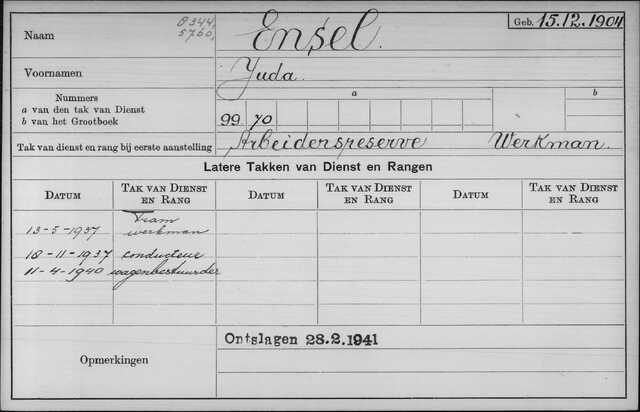 8344,
5760,
Naam
Ensel.
Geb. 15.12.1904
Voornamen
Yuda.
Nummers
a van den tak van Dienst
b van het Grootboek
a
b
99 70
Tak van dienst en rang bij eerste aanstelling
Arbeidersreserve Werkman.
Latere Takken van Dienst en Rangen
Datum Tak van Dienst en Rang Datum Tak van Dienst en Rang Datum Tak van Dienst en Rang
Tram
13-5-1937 werkman
18-11-1937 conducteur
11-4-1940 wagenbestuurder
Opmerkingen
Ontslagen 28.2.1941